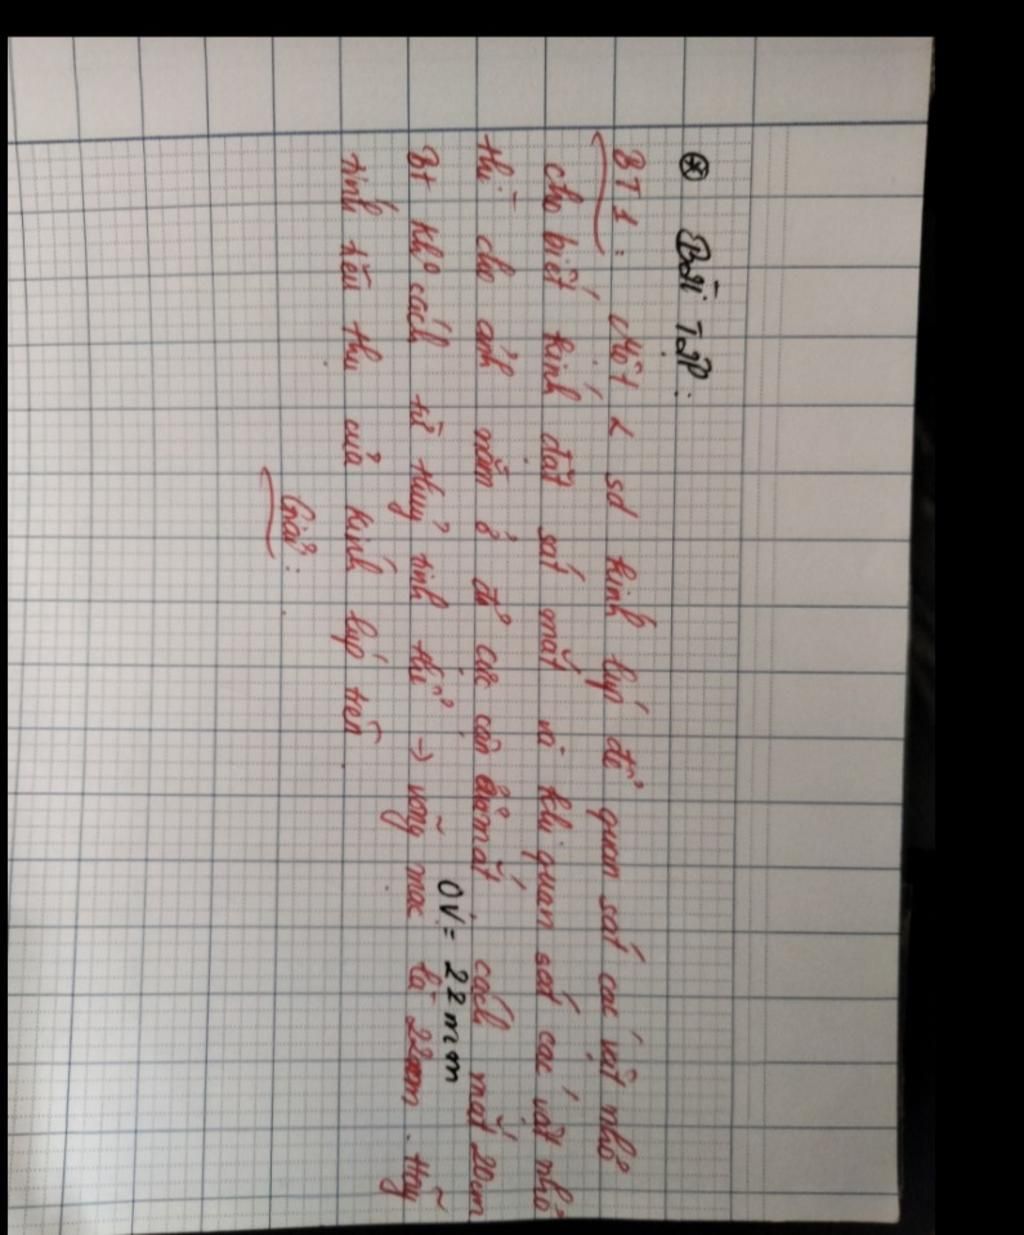 ⊛ Bài Tập:
BT1: Một α sd kính lúp để quan sát các vật nhỏ
cho biết kính đặt sát mắt và khi quan sát các vật nhỏ
thì cho ảnh nằm ở đ' cực cận của mắt. cách mắt 20cm
OV = 22mm
Bt kh° cách từ thuỷ tinh thể → võng mạc là 22mm. Hãy
tính tiêu thự của kính lúp trên.
Giải: